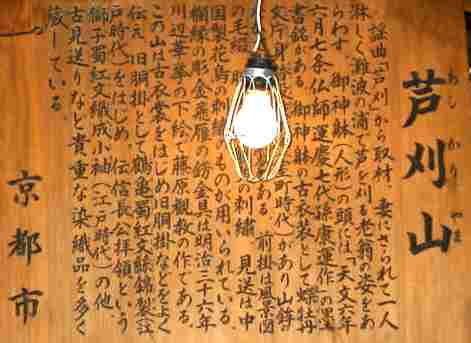 芦刈山
あしかりやま
謡曲「芦刈」から取材、妻にさられて一人
淋しく難波の浦で芦を刈る老翁の姿をあ
らわす。御神躰(人形)の頭には、「天文六年
六月七条仏師運慶七代孫康運作」の墨
書銘がある。御神躰の古衣裳として「蝶牡丹
文片身替 町時代)があり山鉾
ある。前掛は風景図
の毛綴、胴 の刺繍、見送は中
国製花鳥の刺繍のものが用いられている。
欄縁の彫金飛雁の飾金具は明治三十六年
川辺華挙の下絵で藤原観教の作である。
この山は古衣裳をはじめ旧胴掛などをよく
伝え、旧胴掛として「鶴亀蜀紅文絲錦製(江
戸時代)」をはじめ、伝信長公拝領という
獅子蜀紅文紙成小袖(江戸時代)の他
古見送りなど貴重な染織品を多く
蔵している。
京都市